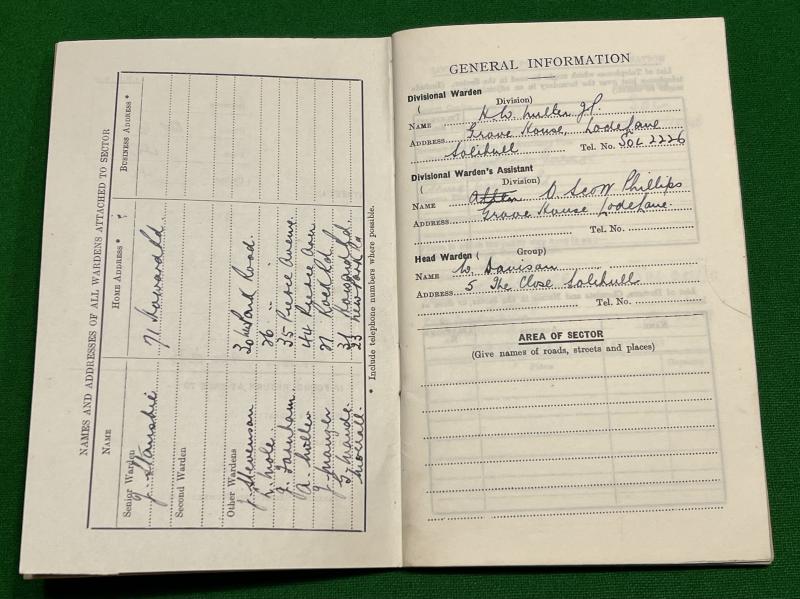 NAMES AND ADDRESSES OF ALL WARDENS ATTACHED TO SECTOR
NAME HOME ADDRESS* BUSINESS ADDRESS*
Senior Warden
J. 71
Second Warden
Other Wardens
J. Stevenson 30 Road
L. Mole 26 "
J. Farnham 35 Pierce Avenue
A. Miller 44 Pierce Aven
J. 27 Rd
G. Maude 31 Rd
Morrall 23 New Park Rd
* Include telephone numbers where possible.
GENERAL INFORMATION
Divisional Warden
( Division)
NAME H.W. Miller J.P.
ADDRESS Grove House, Lode Lane
Solihull Tel. No. SOL 2226
Divisional Warden's Assistant
( Division)
NAME D Scott Phillips
ADDRESS Grove House Lode Lane.
Tel. No.
Head Warden ( Group)
NAME W. Davison
ADDRESS 5 The Close Solihull
Tel. No.
AREA OF SECTOR
(Give names of roads, streets and places)